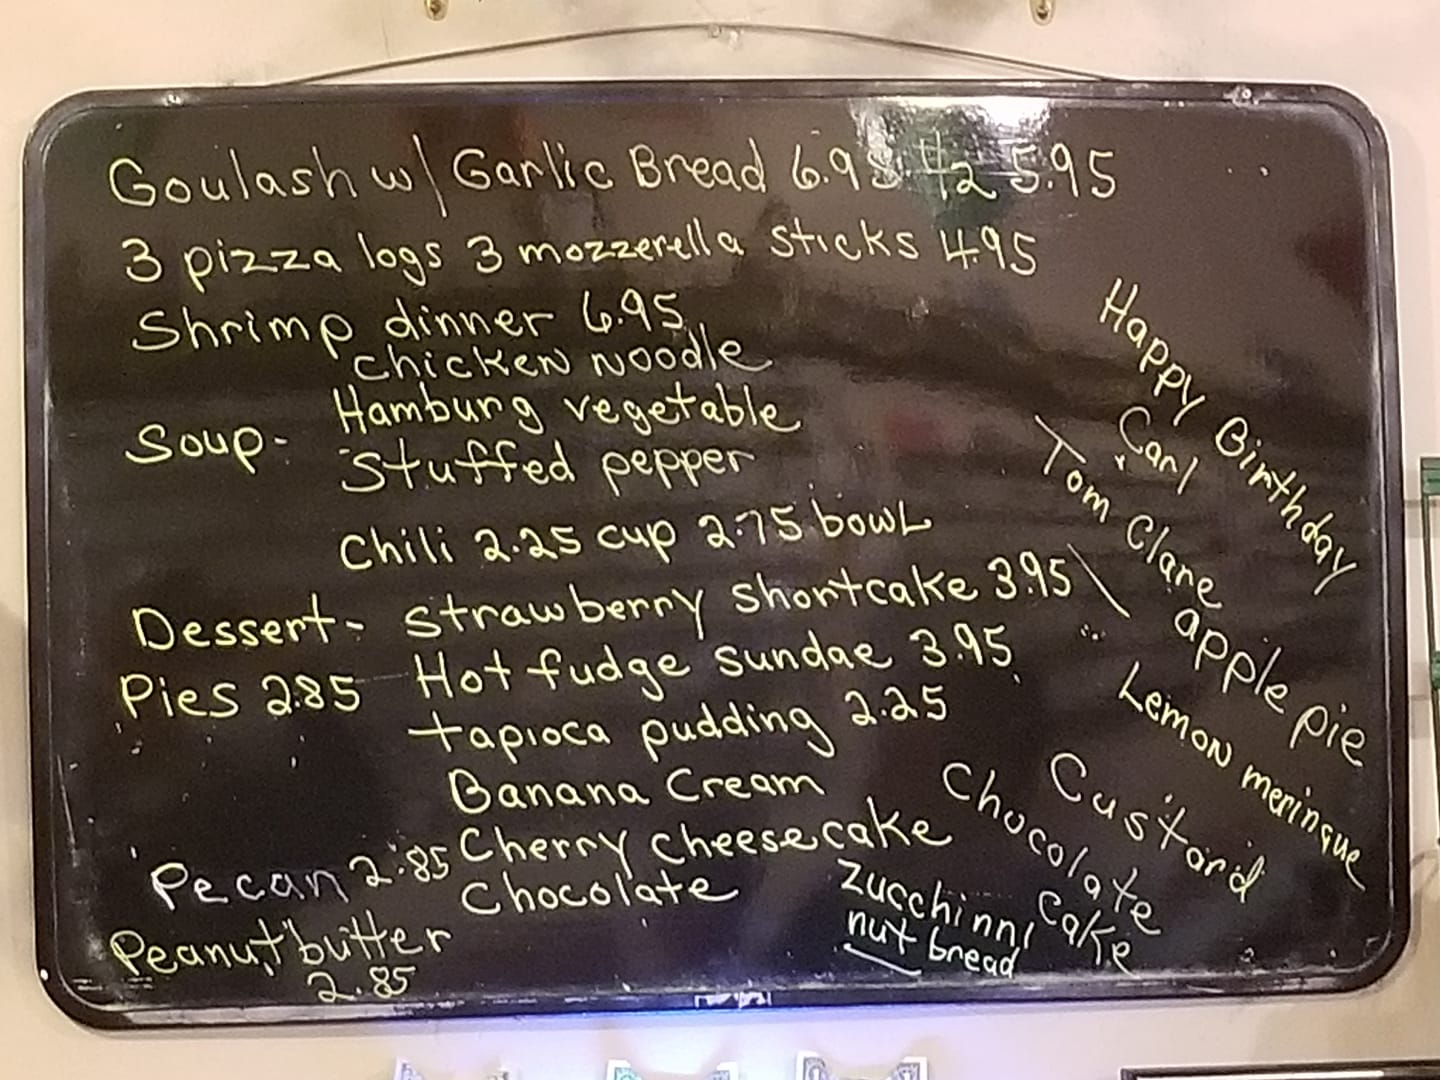 Goulash w/ Garlic Bread 6.95 1/2 5.95
3 pizza logs 3 mozzerella sticks 4.95
Shrimp dinner 6.95
chicken noodle
Soup- Hamburg vegetable
Stuffed pepper
Chili 2.25 cup 2.75 bowl
Dessert- Strawberry Shortcake 3.95
Pies 2.85 Hot fudge sundae 3.95
tapioca pudding 2.25
Banana Cream
Cherry cheesecake
Pecan 2.85
Chocolate
Peanut butter
2.85
Happy Birthday
Carl
Tom Clare
apple pie
Lemon meringue
Custard
Chocolate
cake
Zucchinni
nut bread